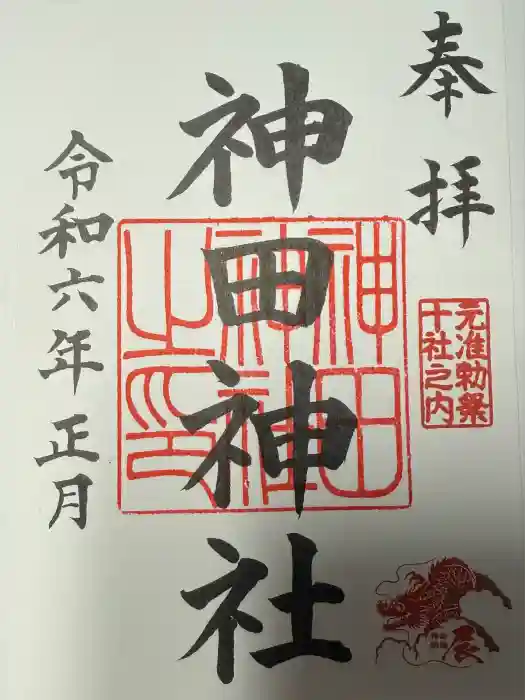 奉拝
元准勅祭
十社之内
辰
神田神社
神田
神社
之印
令和六年正月